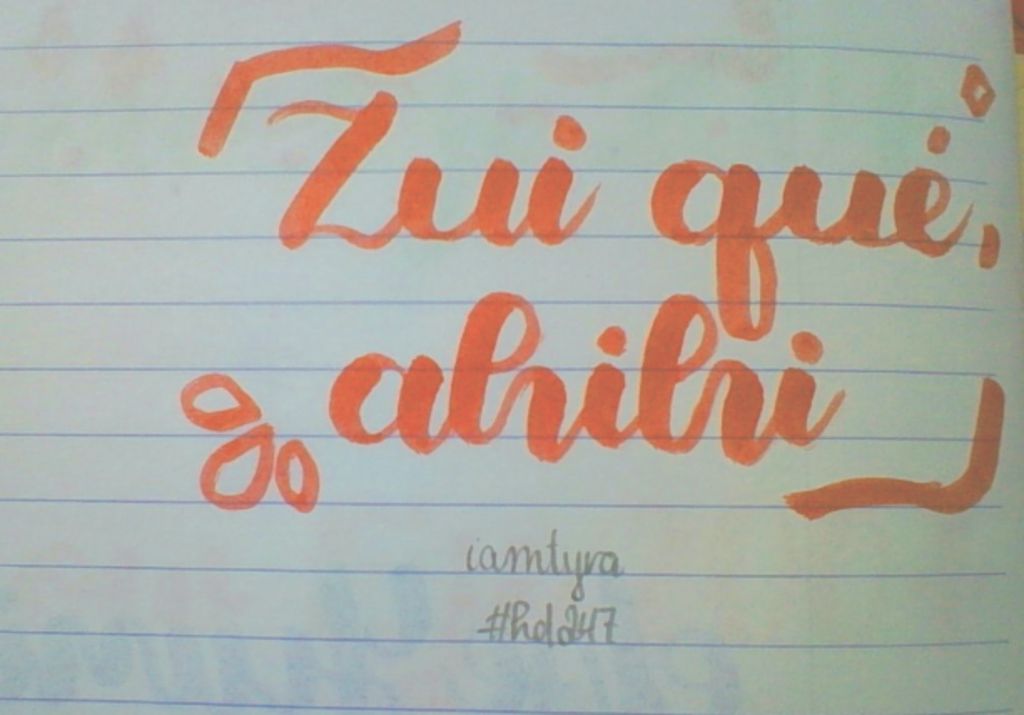 Zui qué,
ahihi
iamtyra
#hd247